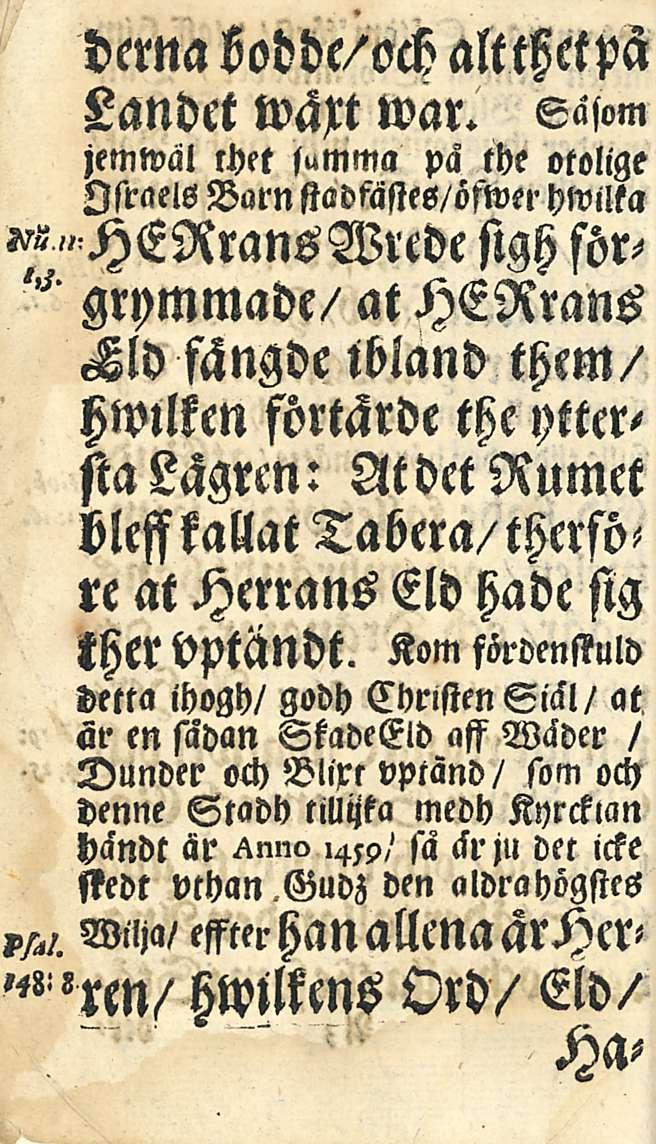 derna bodde/ och alt thet på
Landet wäxt war. Såsom
jemwäl thet samma på the otolige
Israels Barn stadfästes/ öfwer hwilka
Nũ. 11: HERrans Wrede sigh för-
1,3. grymmade/ at HERrans
Eld fängde ibland them/
hwilken förtärde the ytter-
sta Lägren: At det Rumet
bleff kallat Tabera/ therfö-
re at Herrans Eld hade sig
ther vptändt. Kom fördenskuld
detta ihogh/ godh Christen Siäl/ at
är en sådan SkadeEld aff Wäder /
Dunder och Blixt vptänd/ som och
denne Stadh tillijka medh Kyrckian
händt är Anno 1459/ så är ju det icke
skedt vthan Gudz den aldrahögstes
Wilja/ effter han allena är Her-
Psal. 148: 8. ren/ hwilkens Ord/ Eld/
Ha-